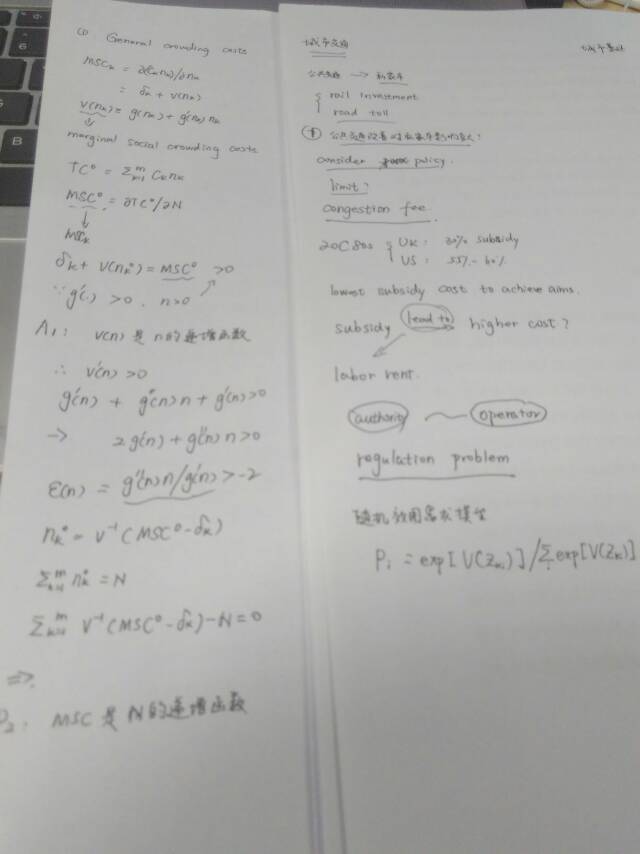 (1) General crowding costs
MSCk = ∂(Cknk)/∂nk
= δk + v(nk)
v(nk) = g(nk) + g'(nk)nk
marginal social crowding costs
TC° = Σ_{k=1}^m Cknk
MSC° = ∂TC°/∂N
MSCk
δk + v(nk°) = MSC° >0
∵ g'(.) >0 . n>0
Λ1: v(n) 是 n的递增函数
∴ v'(n) >0
g'(n) + g''(n)n + g'(n)>0
→ 2g'(n) + g''(n)n>0
ε(n) = g''(n)n/g'(n) > -2
nk° = v⁻¹(MSC° - δk)
Σ_{k=1}^m nk° = N
Σ_{k=1}^m v⁻¹(MSC° - δk) - N = 0
=>.
2. MSC 是 N的递增函数
城市交通
公共交通 → 私家车
rail investment
road toll
consider policy.
limit?
congestion fee.
20C 80s UK: 30% subsidy
US: 55% - 60%
lowest subsidy cost to achieve aims.
subsidy lead to higher cost?
labor rent.
authority operator
regulation problem
随机效用需求模型
Pi = exp[V(Zki)]/Σ exp[V(Zk)]